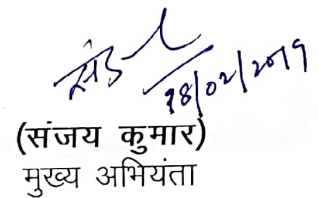 18/02/2019
(संजय कुमार)
मुख्य अभियंता